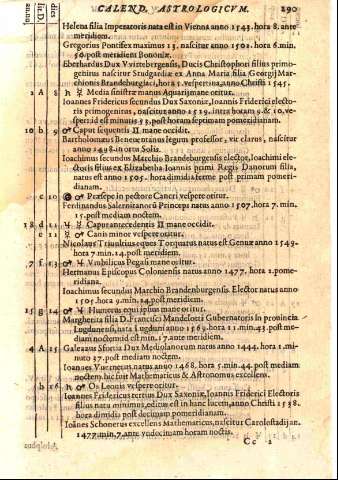 CALEND. ASTROLOGICVM. 290
Helena filia Imperatoris nata est in Vienna anno 1543. hora 8. ante
meridiem.
Gregorius Pontifex maximus 13. nascitur anno 1502. hora 6. min.
50. post meridiem Bononiæ.
Eberhardus Dux Vvirtebergensis, Ducis Christophori filius primo-
genitus nascitur Studgardiæ ex Anna Maria filia Georgij Mar-
chionis Brandeburgiaci, hora 5. vespertina, anno Christi 1545.
1 A 8 ♄ ☿ Media sinistræ manus Aquarij mane oritur.
Ioannes Fridericus secundus Dux Saxoniæ, Ioannis Friderici electo-
ris primogenitus, nascitur anno 1529. intra horam 9. & 10. ves-
peri: id est minutis 33. post horam septimam pomeridianam.
10 b 9 ♂ Caput sequentis II mane occidit.
Bartholomæus Beneuentanus legum professor, vir clarus, nascitur
anno 1498. in ortu Solis.
Ioachimus secundus Marchio Brandeburgensis elector, Ioachimi ele-
ctoris filius ex Elizabetha Ioannis primi Regis Danorum filia,
natus est anno 1505. hora dimidia ferme post primam pomeri-
dianam.
c 10 ♂ Præsepe in pectore Cancri vespere oritur.
Ferdinandus Salernitanorũ Princeps natus anno 1507. hora 7. min.
15. post mediam noctem.
18 d 11 ♃ ☿ Caput præcedentis II mane occidit.
e 12 ☿ ♂ Canis minor vespere oritur.
Nicolaus Triuultius eques Torquatus natus est Genuæ anno 1549.
hora 7. min 14. post meridiem.
7 f 13 ♂ Vmbilicus Pegasi mane oritur.
Hermanus Episcopus Coloniensis natus anno 1477. hora 1. pome-
ridiana.
Ioachimus secundus Marchio Brandeburgensis. Elector natus anno
1505. hora 9. min. 24. post meridiem.
15 g 14 ♂ ♃ Humerus equi ipsius mane oritur.
Margherita filia D. Francisci Mandeloti Gubernatoris in prouincia
Lugdunensi, nata Lugduni anno 1569. hora 11. min. 43. post me-
diam noctem id est min. 17. ante meridiem.
4 A 15 Galeazus Sfortia Dux Mediolanorum natus anno 1444. hora 1. mi-
nuto 37. post mediam noctem.
Ioannes Vuernerus natus anno 1468. hora 5. min. 44. post mediam
noctem hic fuit Mathematicus & Astronomus excellens.
b 16 ♄ ♂ Os Leonis vespere oritur.
Ioannes Fridericus tertius Dux Saxoniæ, Ioannis Friderici Electoris
filius natu minimus, editus est in hanc lucem, anno Christi 1538.
hora dimidia post decimam pomeridianam.
Ioañes Schonerus excellens Mathematicus, nascitur Carolostadij an.
1477. min. 7. ante vndecimam horam noctis.
Cc 2